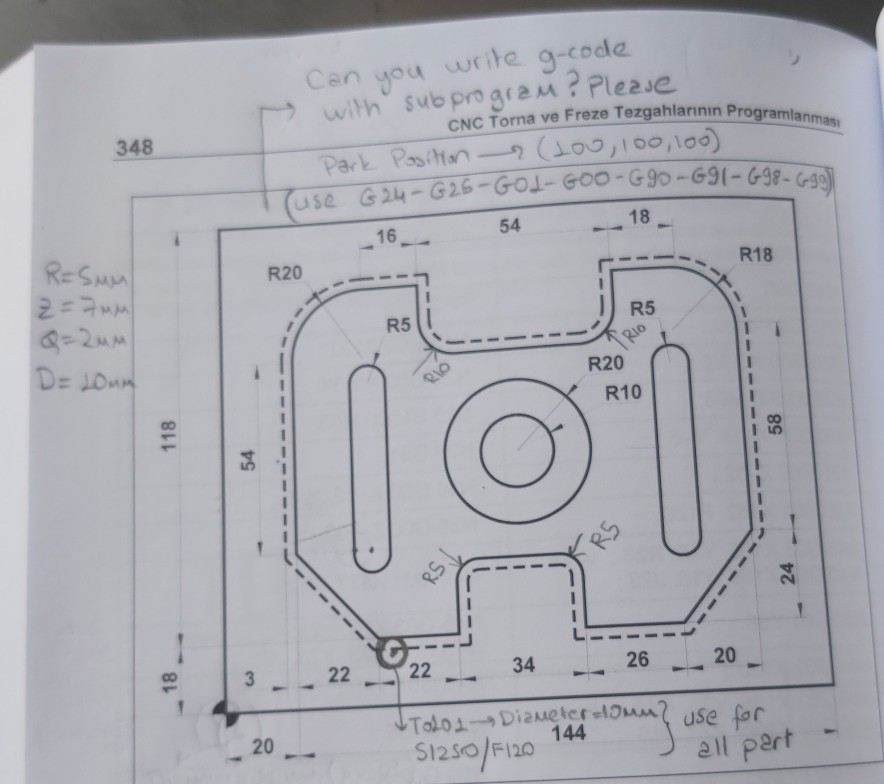 Can you write g-code
with subprogram? Please
CNC Torna ve Freze Tezgahlarının Programlanması
348
Park Position → (100,100,100)
(use G24-G25-G01-G00-G90-G91-G98-G99)
54
18
16
R=5mm
Z=7mm
Q=2mm
D=10mm
R20
R18
R5
R5
R10
R10
R20
R10
118
54
58
R5
R5
24
18
3
22
22
34
26
20
T0101 → Diameter=10mm
S1250/F120
use for
all part
144
20